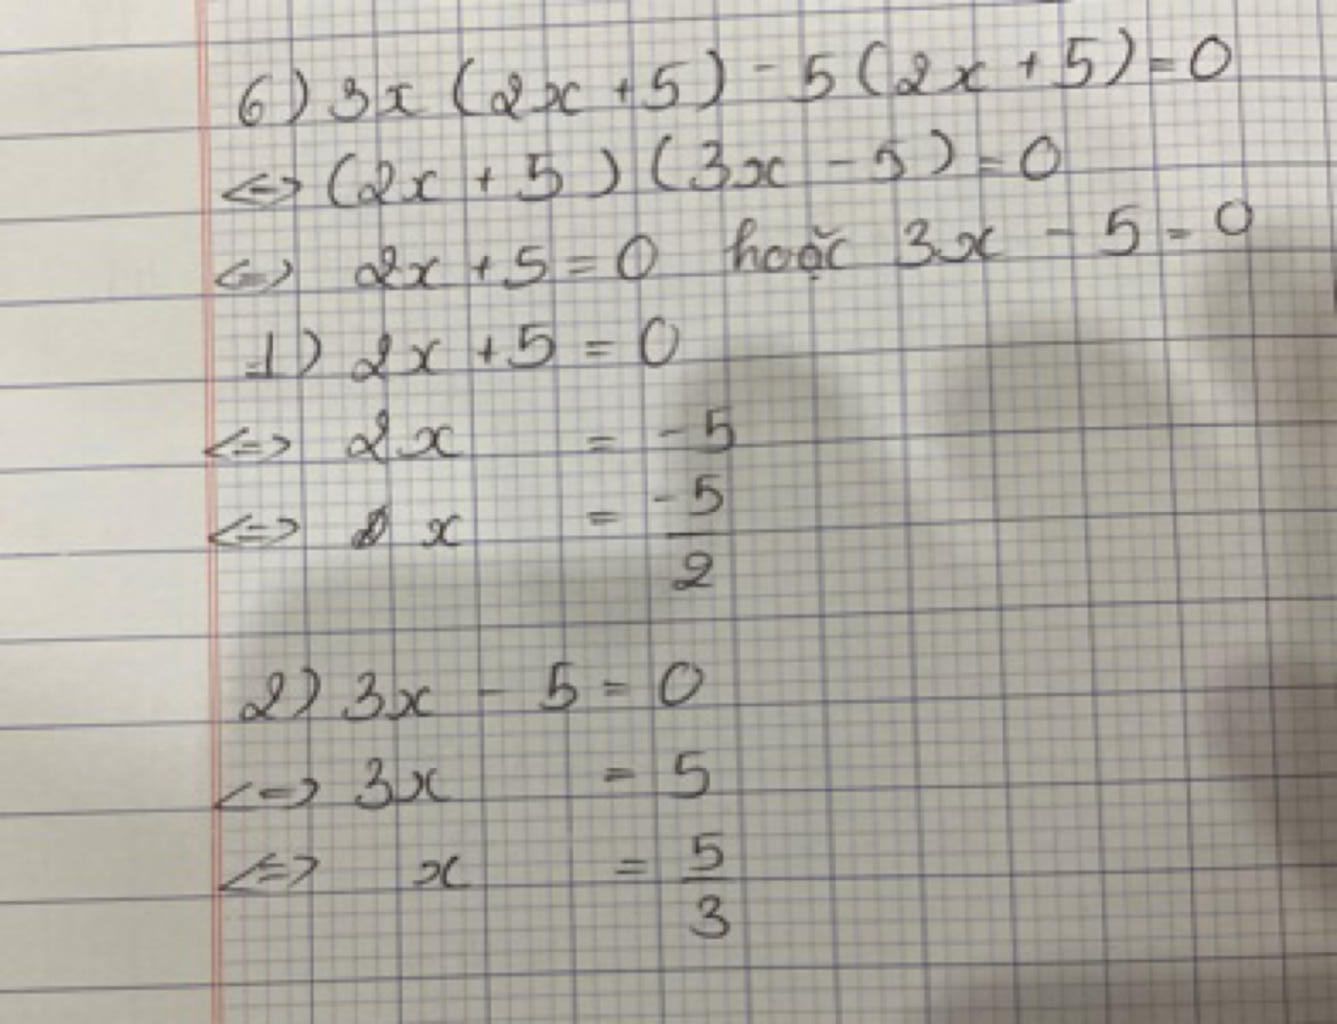 6) 3x (2x + 5) - 5 (2x + 5) = 0
<=> (2x + 5) (3x - 5) = 0
<=> 2x + 5 = 0 hoặc 3x - 5 = 0
1) 2x + 5 = 0
<=> 2x = -5
<=> x = -5/2
2) 3x - 5 = 0
<=> 3x = 5
<=> x = 5/3